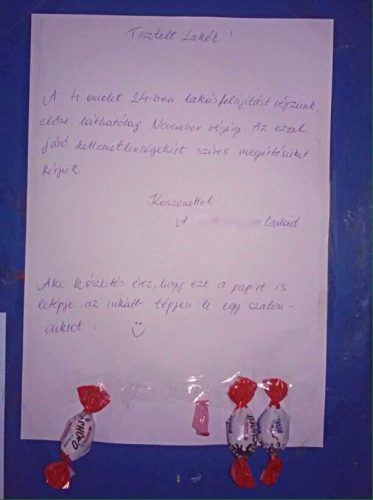 Tisztelt Lakók!
A 4 emelet 14-ben lakásfelújítást végzünk,
előre láthatólag November végéig Az ezzel
járó kellemetlenségekért szíves megértésüket
kérjük
Köszönettel
A Család
Aki késztetés érez, hogy ezt a papírt is
letépje az inkább tépjen le egy szalon-
cukrot!